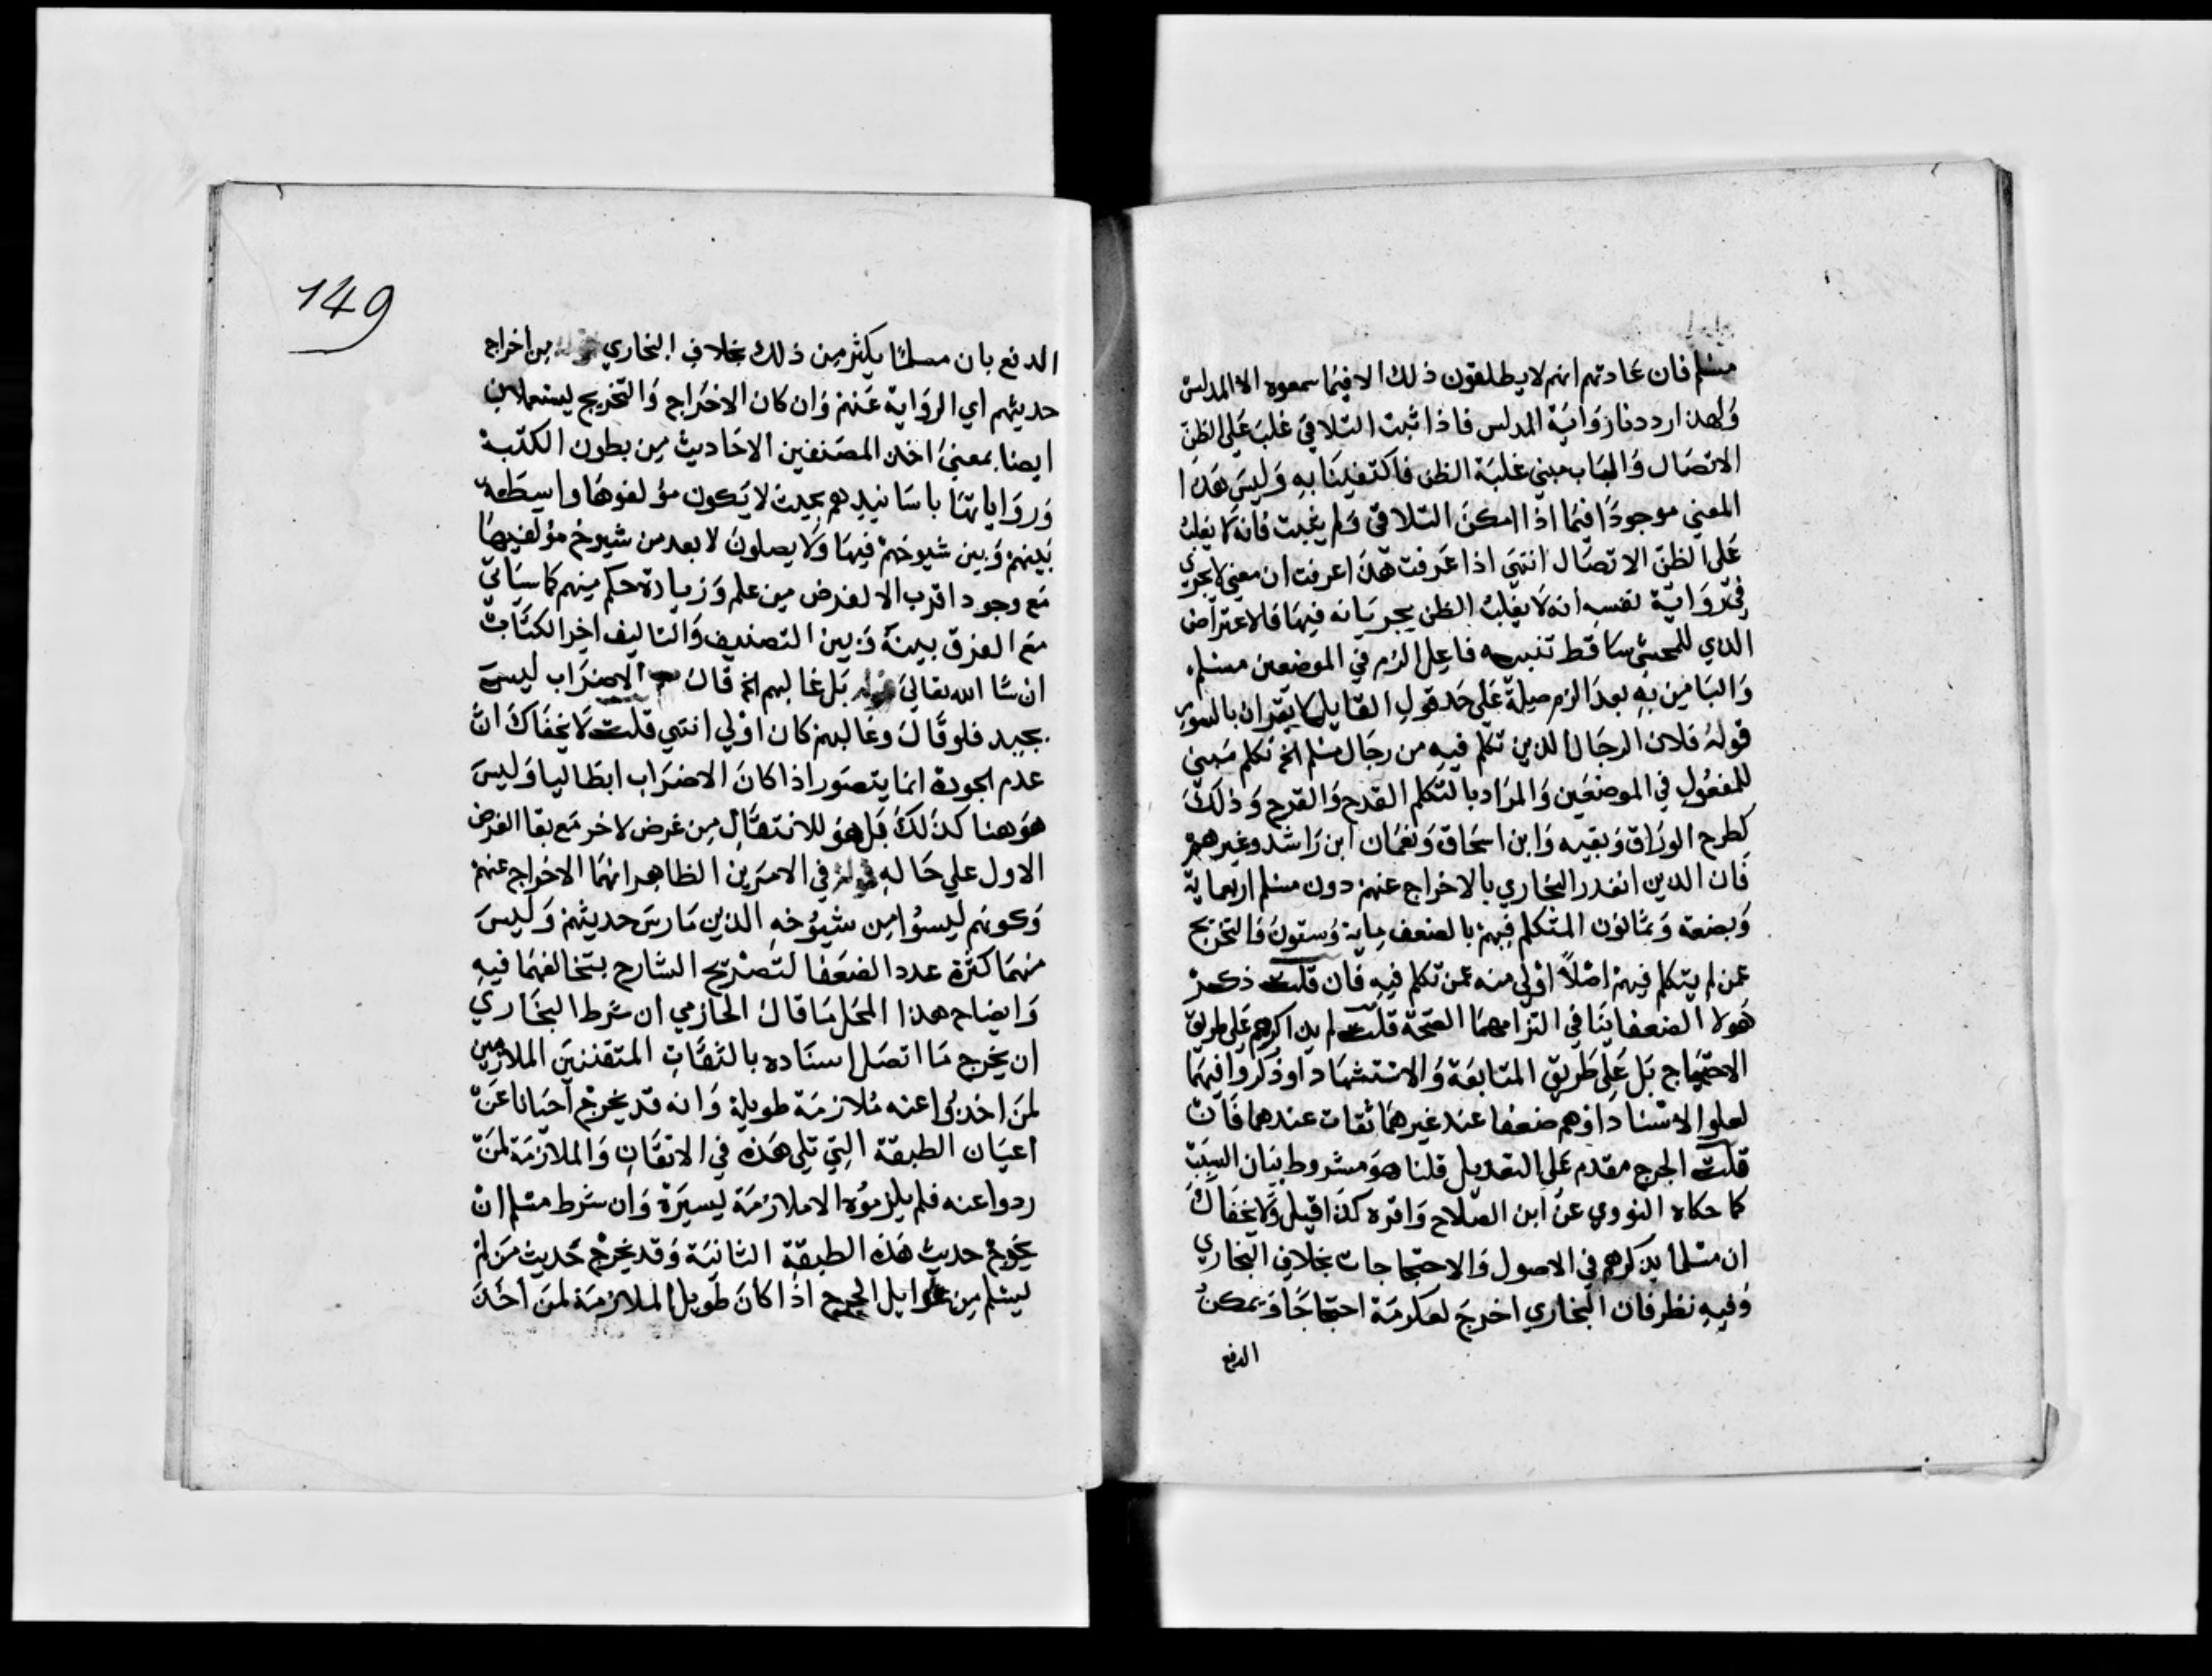 مسلم فان عادتهم انهم لا يطلقون ذلك الا فيما سمعوه الا المدلس
ولهذا رددنا رواية المدلس فاذا ثبت التلاقي غلب على الظن
الاتصال والباب مبني غلبة الظن فاكتفينا به وليس هذا
المعني موجودا فيما اذا امكن التلاقي ولم يثبت فانه لا يغلب
على الظن الاتصال انتهي اذا عرفت هذا عرفت ان معني لا يجري
في رواية لنفسه انه لا يغلب الظن بجريانه فيها فلا عتراض
الذي للمحشي ساقط تنبيه فاعل الزم في الموضعين مسلم
والبا من به بعد الزم صلة على حد قول القايل لا يقران بالسور
قوله فلان الرجال الذين تكلم فيه من رجال مسلم الخ تكلم مبني
للمفعول في الموضعين والمراد بالتكلم القدح والقرح وذلك
كطرح الوراق وبقيه وابن اسحاق ونعمان ابن راشد وغيرهم
فان الذين انفدر البخاري بالاخراج عنهم دون مسلم اربعماية
وبضعة وثمانون المتكلم فيهم بالضعف ماية وستون فالتخريج
عمن لم يتكلم فيهم اصلا اولي منه عمن تكلم فيه فان قلت ذكر
هولا الضعفا ينافي التزامهما الصحة قلت لم يذاكرهم على طريق
الاحتجاج بل على طريق المتابعة والاستشهاد او ذكروا فيهما
لعلو الاسناد او هم ضعفا عند غيرهما ثقات عندهما فان
قلت الجرح مقدم على التعديل قلنا هو مشروط ببيان السبب
كما حكاه النووي عن ابن الصلاح واقره كذا قيل ولا يخفاك
ان مسلما يذكرهم في الاصول والاحتجاجات بخلاف البخاري
وفيه نظر فان البخاري اخرج لعكرمة احتجاجا ويمكن
الدفع
149
الدفع بان مسلما يكثر من ذلك بخلاف البخاري قوله من اخراج
حديثهم اي الرواية عنهم وان كان الاخراج والتخريج ليستعملان
ايضا بمعني اخذ المصنفين الاحاديث من بطون الكتب
وروايتها باسانيدهم بحيث لا يكون مؤلفوها واسطة
بينهم وبين شيوخهم فيها ولا يصلون لا بعد من شيوخ مؤلفيها
مع وجود اقرب الا لغرض من علم وزيادة حكم منهم كما سياتي
مع الفرق بينه وبين التصنيف والتاليف اخر الكتاب
ان شا الله تعالي قوله بل غالبهم الخ قال الاضراب ليس
بجيد فلو قال وغالبهم كان اولي انتهي قلت لا يخفاك ان
عدم الجودة انما يتصور اذا كان الاضراب ابطاليا وليس
هو هنا كذلك بل هو للانتقال من غرض لاخر مع بقا الغرض
الاول علي حاله قوله في الامرين الظاهر انهما الاخراج عنهم
وكونهم ليسوا من شيوخه الذين مارس حديثهم وليس
منهما كثرة عدد الضعفا لتصريح الشارح بتخالفهما فيه
وايضاح هذا المحل ما قال الحازمي ان شرط البخاري
ان يخرج ما اتصل اسناده بالثقات المتقننين الملازمين
لمن اخذوا عنه ملازمة طويلة وانه قد يخرج احيانا عن
اعيان الطبقة التي تلي هذه في الاتقان والملازمة لمن
ردوا عنه فلم يلزموه الا ملازمة ليسيرة وان شرط مسلم ان
يخرج حديث هذه الطبقة الثانية وقد يخرج حديث من لم
ليسلم من غوايل الجرح اذا كان طويل الملازمة لمن اخذ